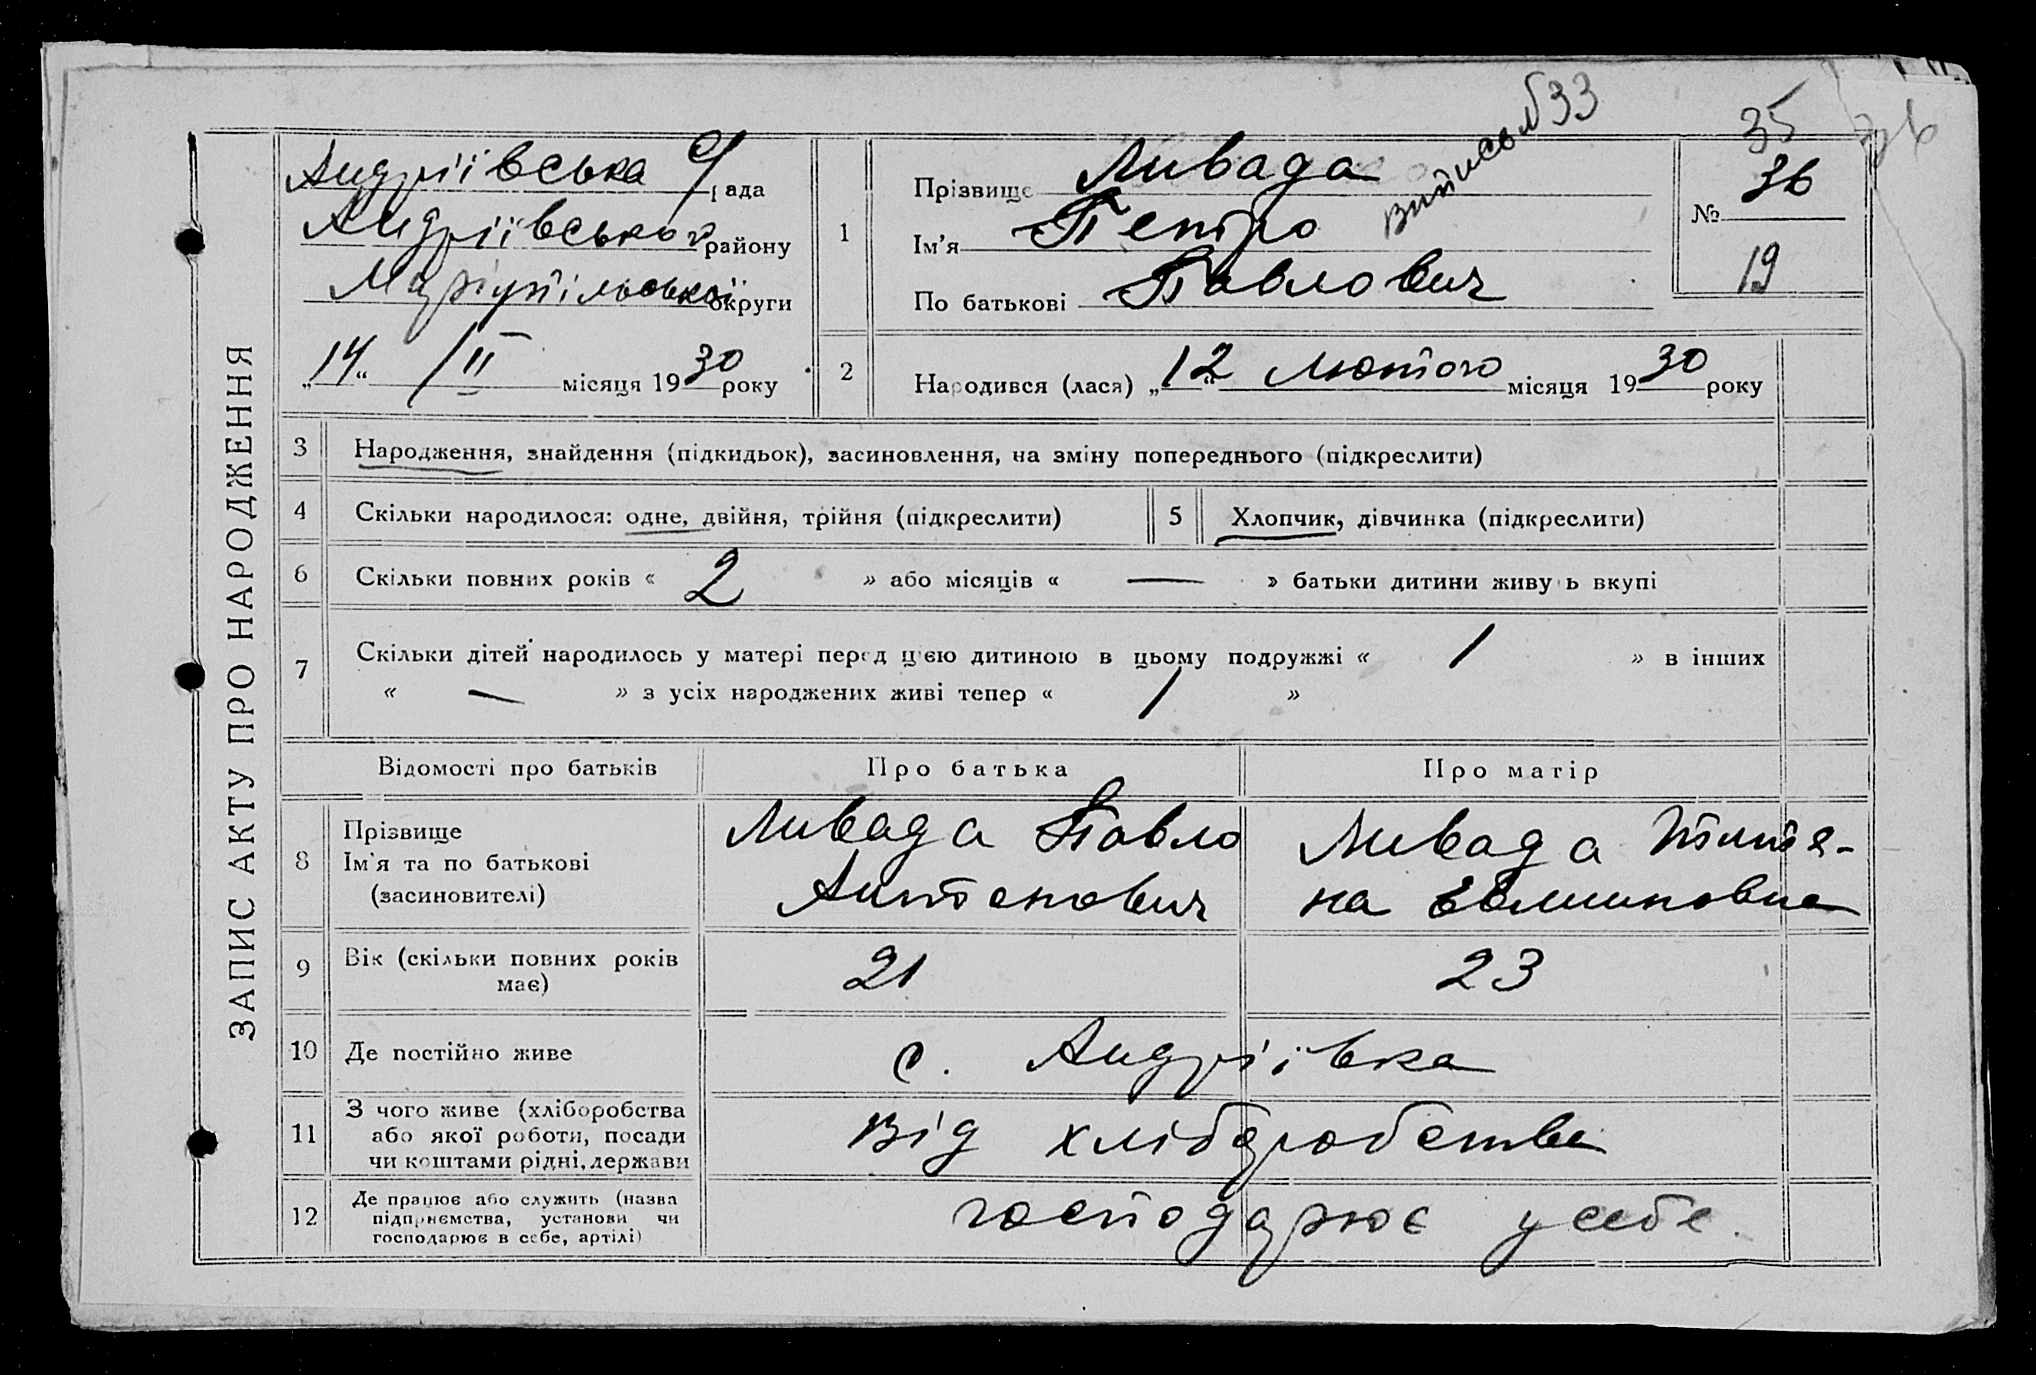 ЗАПИС АКТУ ПРО НАРОДЖЕННЯ
Андріївська с/рада
Андріївського району
Маріупільської округи
„14“ /II місяця 1930 року
1
Прізвище Ливада
Ім'я Петро
По батькові Павлович
Витись №33
35
36
№ 36
19
2 Народився (лася) „12“ лютого місяця 1930 року
3 Народження, знайдення (підкидьок), засиновлення, на зміну попереднього (підкреслити)
4 Скільки народилося: одне, двійня, трійня (підкреслити) 5 Хлопчик, дівчинка (підкреслити)
6 Скільки повних років « 2 » або місяців « — » батьки дитини живуть вкупі
7 Скільки дітей народилось у матері перед цією дитиною в цьому подружжі « 1 » в інших
« — » з усіх народжених живі тепер « 1 »
Відомості про батьків Про батька Про матір
8 Прізвище
Ім'я та по батькові
(засиновителі)
Ливада Павло
Антонович
Ливада Титя-
на
9 Вік (скільки повних років має) 21 23
10 Де постійно живе с. Андріївка
11 З чого живе (хліборобства
або якої роботи, посади
чи коштами рідні, держави
від хліборобства
12 Де працює або служить (назва
підприємства, установи чи
господарює в себе, артілі)
господарює у себе.